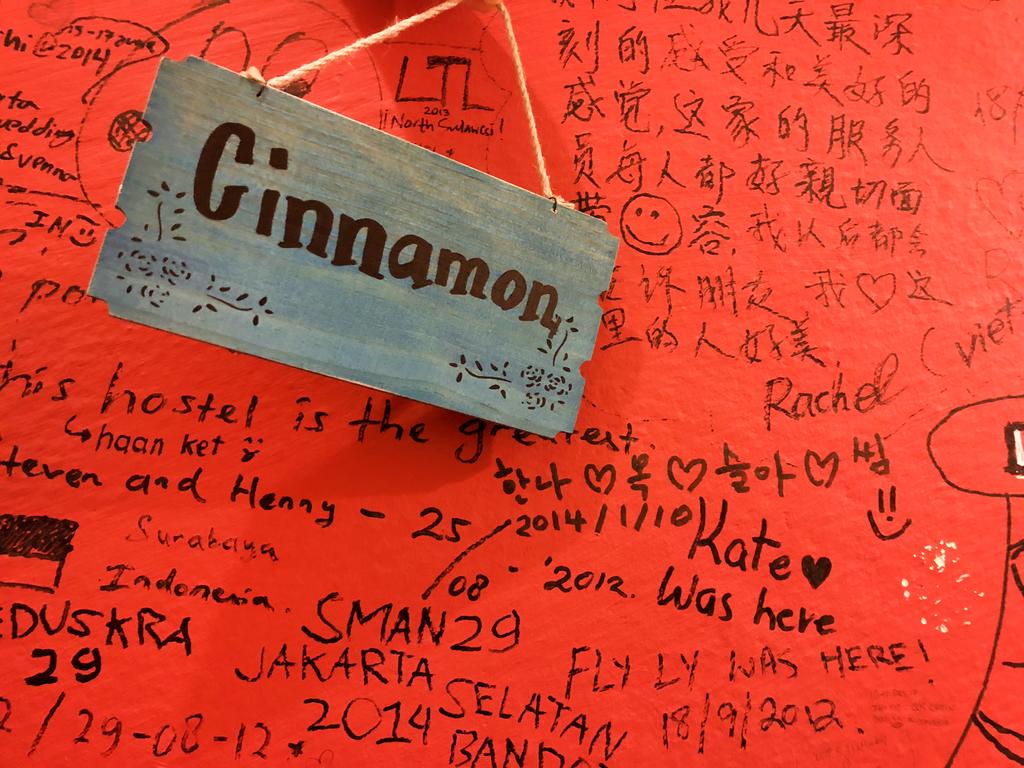 13-17 June
@2014
LTL
2013
North Sulawesi!
几天最深
刻的感受和美好的
感觉,这家的服务人
员每人都好親切面
容,我以后都会
朋友 我♡这
里的人好美
Rachel
Wedding
Svenna
IN
Cinnamon
this hostel is the greatest.
haan ket
Steven and Henny - 25/08 - '2012.
Surabaya
Indonesia.
한나♡목♡솔아♡쌤
2014/1/10
Kate♥
Was here
EDUSKRA
29
/29-08-12
SMAN29
JAKARTA
2014
SELATAN
FLY LY WAS HERE!
18/9/2012.